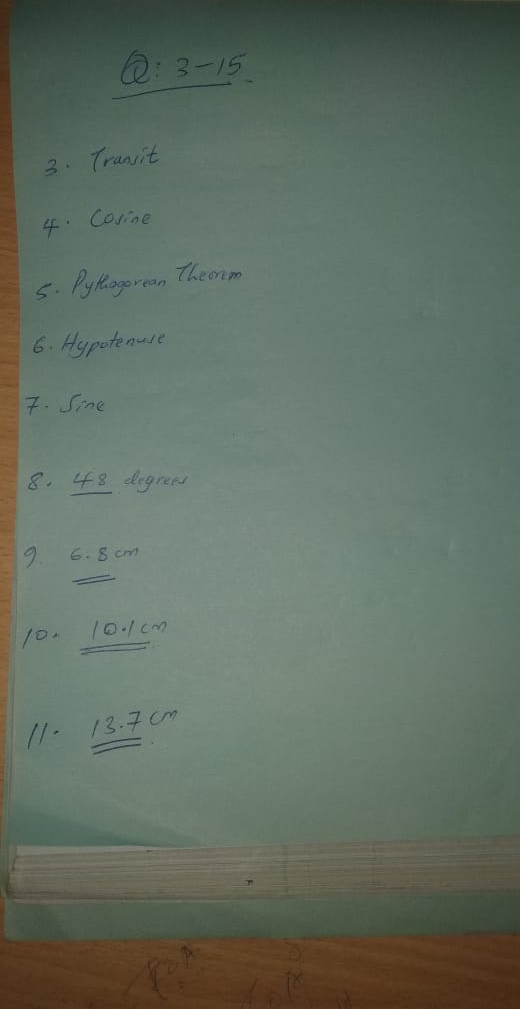 Q: 3-15
3. Transit
4. Cosine
5. Pythagorean Theorem
6. Hypotenuse
7. Sine
8. 48 degrees
9. 6.8 cm
10. 10.1 cm
11. 13.7 cm